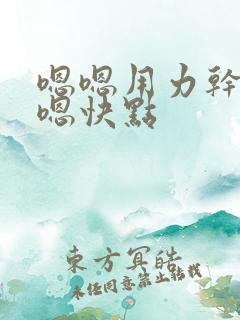 嗯嗯用力幹
嗯快點
東方冥皓
未经同意禁止转载